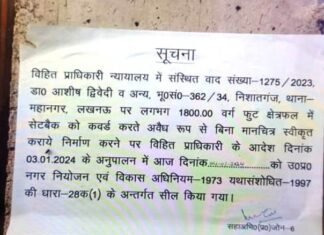 सूचना
विहित प्राधिकारी न्यायालय में संस्थित वाद संख्या-1275/2023,
डा0 आशीष द्विवेदी व अन्य, भू0सं0-362/34, निशातगंज, थाना-
महानगर, लखनऊ पर लगभग 1800.00 वर्ग फुट क्षेत्रफल में
सेटबैक को कवर्ड करते अवैध रूप से बिना मानचित्र स्वीकृत
कराये निर्माण करने पर विहित प्राधिकारी के आदेश दिनांक
03.01.2024 के अनुपालन में आज दिनांक को उ0प्र0
नगर नियोजन एवं विकास अधिनियम-1973 यथासंशोधित-1997
की धारा-28क(1) के अन्तर्गत सील किया गया।
सहा0अभि0(प्र0)जोन-6